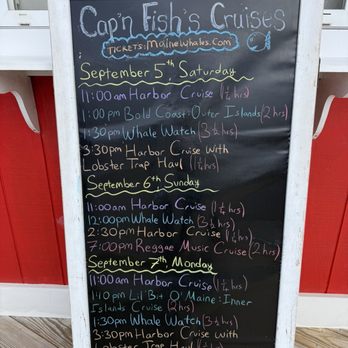 Cap'n Fish's Cruises
TICKETS: MaineWhales.Com
September 5th, Saturday
11:00am Harbor Cruise (1¼ hrs)
1:00 pm Bold Coast: Outer Islands (2 hrs)
1:30pm Whale Watch (3½ hrs)
3:30pm Harbor Cruise with
Lobster Trap Haul (1¼ hrs)
September 6th, Sunday
11:00am Harbor Cruise (1¼ hrs)
12:00pm Whale Watch (3½ hrs)
2:30pm Harbor Cruise (1¼ hrs)
7:00pm Reggae Music Cruise (2 hrs)
September 7th, Monday
11:00am Harbor Cruise (1¼ hrs)
1:10 pm Lil' Bit O' Maine: Inner
Islands Cruise (2 hrs)
1:30pm Whale Watch (3½ hrs)
3:30pm Harbor Cruise with
Lobster Trap Haul